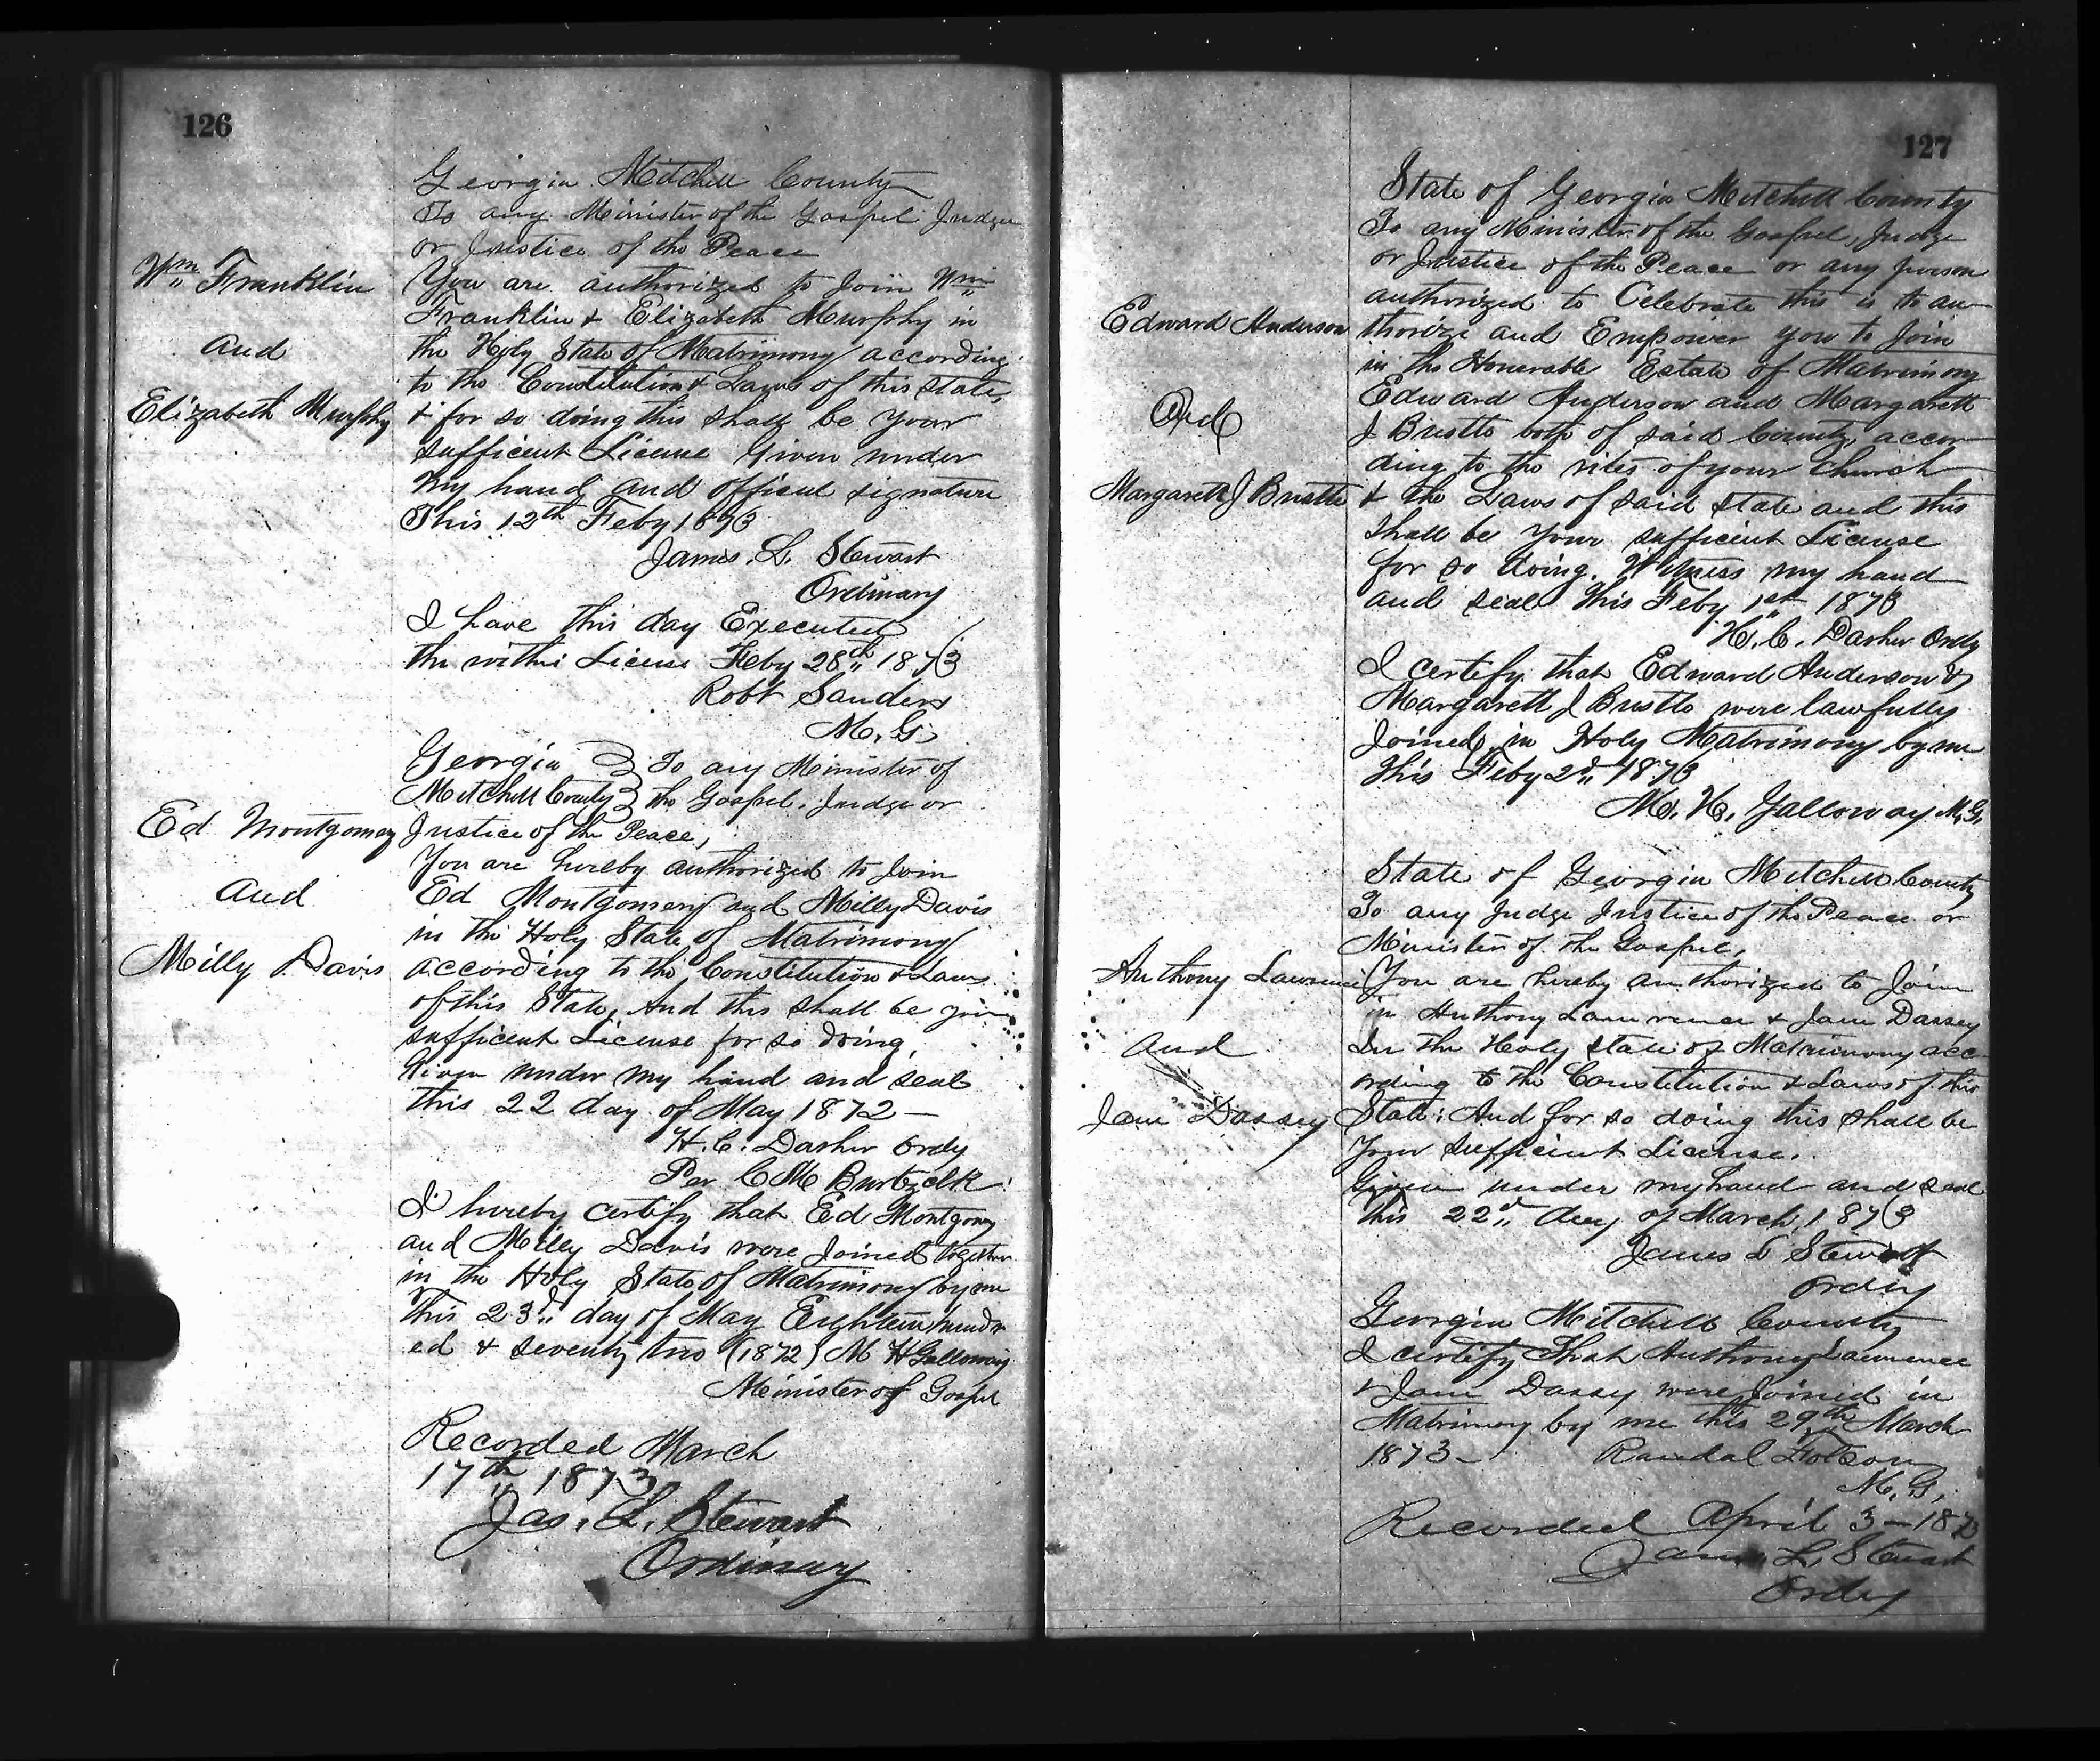 126
Georgia Mitchell County
To any Minister of the Gospel Judge
or Justice of the Peace
Wm Franklin
and
Elizabeth Murphy
You are authorized to Join Wm
Franklin & Elizabeth Murphy in
the Holy State of Matrimony according
to the Constitution & Laws of this State,
& for so doing this shall be your
sufficient License Given under
my hand and official signature
This 12th Feby 1873
James. L. Stewart
Ordinary
I have this day Executed
the within License Feby 28th 1873
Robt Sanders
M. G.
Georgia } To any Minister of
Mitchell County } the Gospel. Judge or
Justice of the Peace,
Ed Montgomery
and
Milly Davis
You are hereby authorized to Join
Ed Montgomery and Milly Davis
in the Holy State of Matrimony
according to the Constitution & Laws
of this State, And this shall be your
sufficient License for so doing,
Given under my hand and seal
this 22 day of May 1872 —
H. C. Dasher Ordy
Per C M
I hereby certify that Ed Montgomy
and Milly Davis were Joined together
in the Holy State of Matrimony by me
This 23d day of May Eighteen hundr
ed & seventy two (1872) M H Galloway
Minister of Gospel
Recorded March
17th 1873
Jas. L. Stewart
Ordinary
127
State of Georgia Mitchell County
To any Minister of the Gospel, Judge
or Justice of the Peace or any person
authorized to Celebrate this is to au
thorize and Empower you to Join
in the Honorable Estate of Matrimony
Edward Anderson
And
Margarett J
Edward Anderson and Margarett
J both of said County, accor
ding to the rites of your Church
& the Laws of said State and this
shall be your sufficient License
for so doing. Witness my hand
and seal This Feby 1st 1873
H. C. Dasher Ordy
I certify that Edward Anderson &
Margarett J were lawfully
Joined in Holy Matrimony by me
This Feby 2d 1873
M. H. Galloway M. G.
State of Georgia Mitchell County
To any Judge Justice of the Peace or
Minister of the Gospel,
Anthony Lawrence
and
Jane Dassey
You are hereby authorized to Join
in Anthony Lawrence & Jane Dassey
In the Holy state of Matrimony acc
ording to the Constitution & Laws of this
State: And for so doing this shall be
Your sufficient License.
Given under my hand and seal
This 22d day of March 1873
James L Stewart
Ordy
Georgia Mitchell County
I certify That Anthony Lawrence
& Jane Dassy were Joined in
Matrimony by me this 29th March
1873 — Randal Folson
M. G.
Recorded April 3 — 1873
James L. Stewart
Ordy